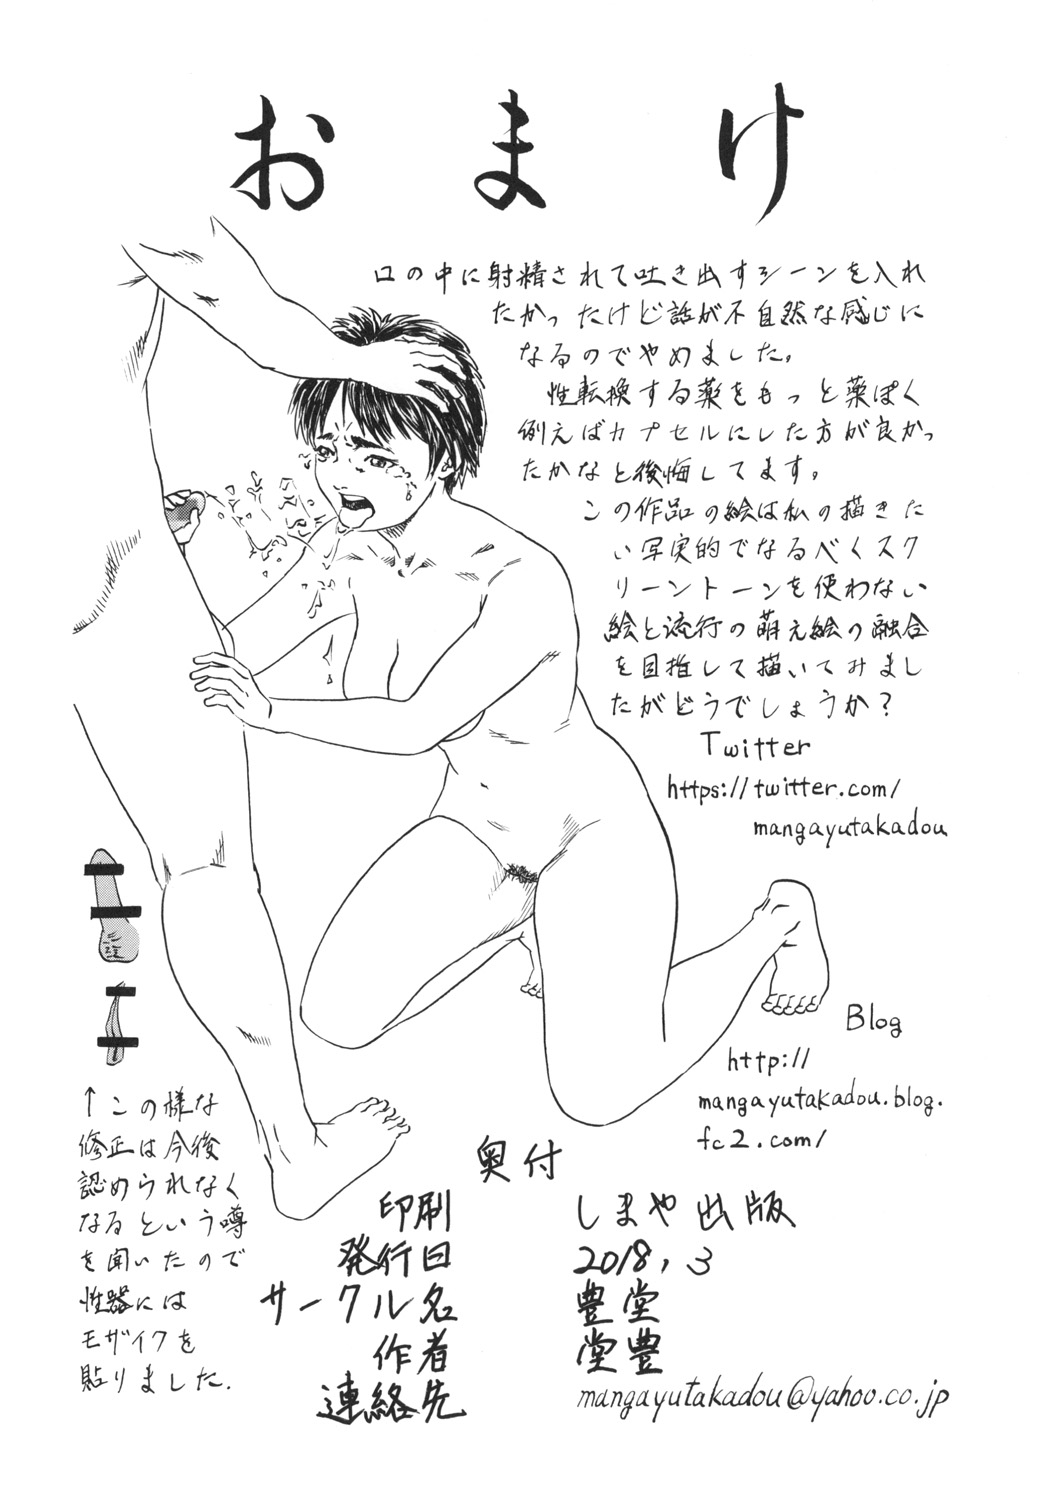 おまけ
口の中に射精されて吐き出すシーンを入れ
たかったけど話が不自然な感じに
なるのでやめました。
性転換する薬をもっと薬ぽく
例えばカプセルにした方が良かっ
たかなと後悔してます。
この作品の絵は私の描きた
い写実的でなるべくスク
リーントーンを使わない
絵と流行の萌え絵の融合
を目推して描いてみまし
たがどうでしょうか？
Twitter
https://twitter.com/
mangayutakadou
Blog
http://
mangayutakadou.blog.
fc2.com/
↑この様な
修正は今後
認められなく
なるという噂
を聞いたので
性器には
モザイクを
貼りました.
奥付
印刷 しまや出版
発行日 2018,3
サークル名 豊堂
作者 堂豊
連絡先 mangayutakadou@yahoo.co.jp